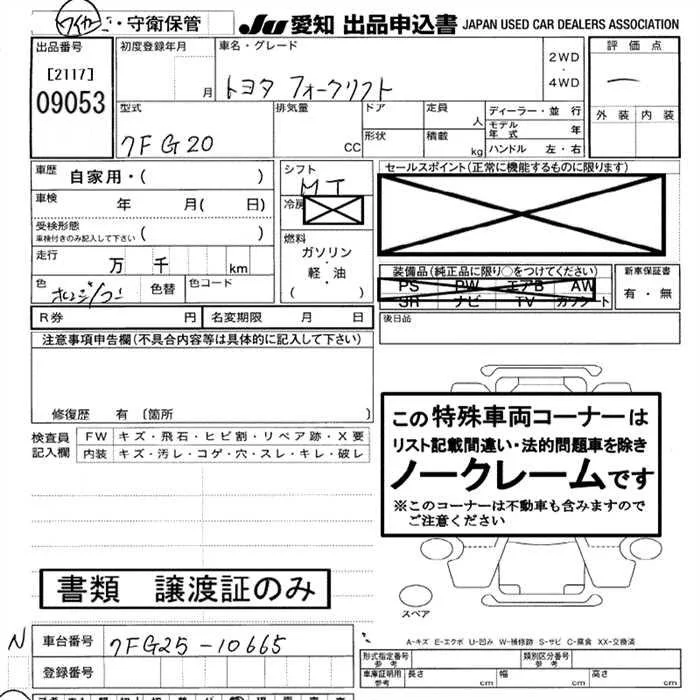 ワイカー ・守衛保管
JU 愛知 出品申込書 JAPAN USED CAR DEALERS ASSOCIATION
出品番号
[2117]
09053
初度登録年月
月
車名・グレード
トヨタ フォークリフト
2WD
・
4WD
評価点
外装 内装
型式
7FG20
排気量
CC
ドア
形状
定員
人
積載
kg
ディーラー・並行
モデル年式 年
ハンドル 左・右
車歴 自家用・( )
車検 年 月( 日)
受検形態
車検付きのみ記入して下さい ( )
走行 万 千 km
色 色替 色コード
R券 円 名変期限 月 日
シフト
MT
冷房
燃料
ガソリン
・
軽・油
( )
セールスポイント(正常に機能するものに限ります)
装備品(純正品に限り○をつけてください)
PS PW エアB AW
SR ナビ TV カワシート
新車保証書
有・無
後日品
注意事項申告欄(不具合内容等は具体的に記入して下さい)
修復歴 有 [箇所 ]
検査員
記入欄
FW キズ・飛石・ヒビ割・リペア跡・X要
内装 キズ・汚レ・コゲ・穴・スレ・キレ・破レ
この特殊車両コーナーは
リスト記載間違い・法的問題車を除き
ノークレームです
※このコーナーは不動車も含みますので
ご注意ください
書類 譲渡証のみ
スペア
A-キズ E-エクボ U-凹み W-補修跡 S-サビ C-腐食 XX-交換済
N
車台番号 7FG25-10665
登録番号
形式指定番号
参考
類別区分番号
参考
車庫証明用
参考
長さ cm 幅 cm 高さ cm